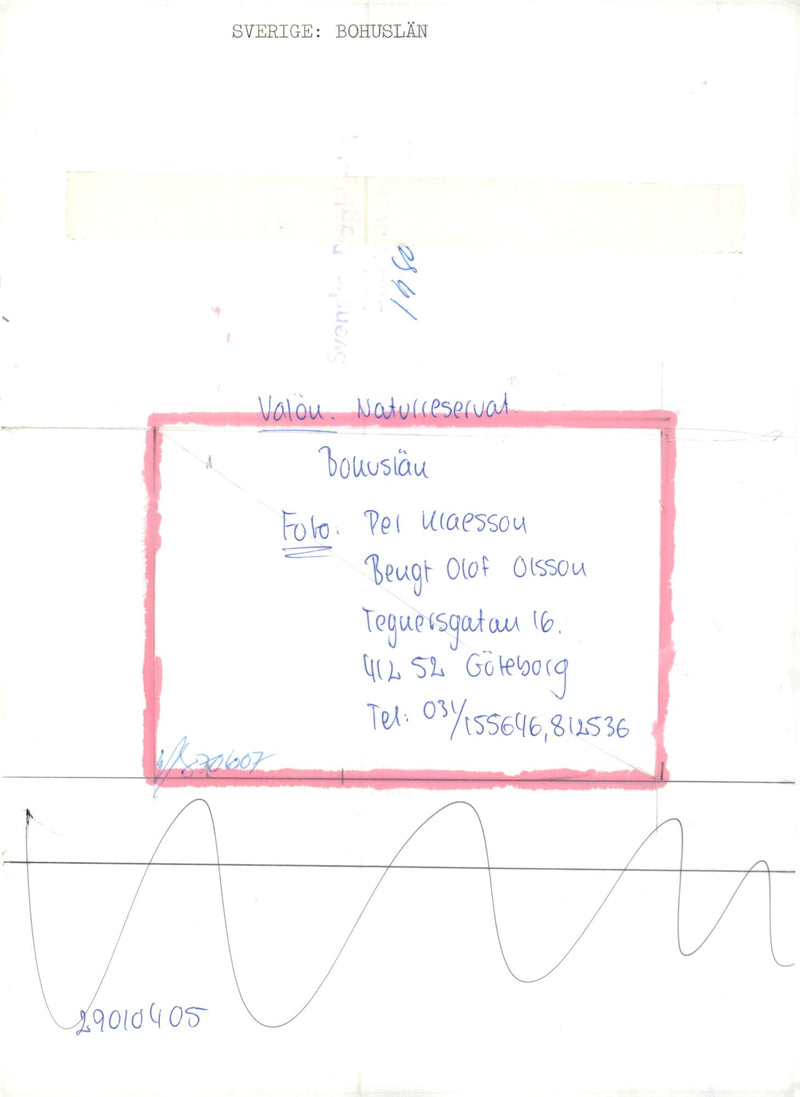 SVERIGE: BOHUSLÄN
1980
Valön. Naturreservat.
Bohuslän
Foto: Per Klaesson
Bengt Olof Olsson
Tegnersgatan 16.
412 52 Göteborg
Tel: 031/155646, 812536
870607
29010405